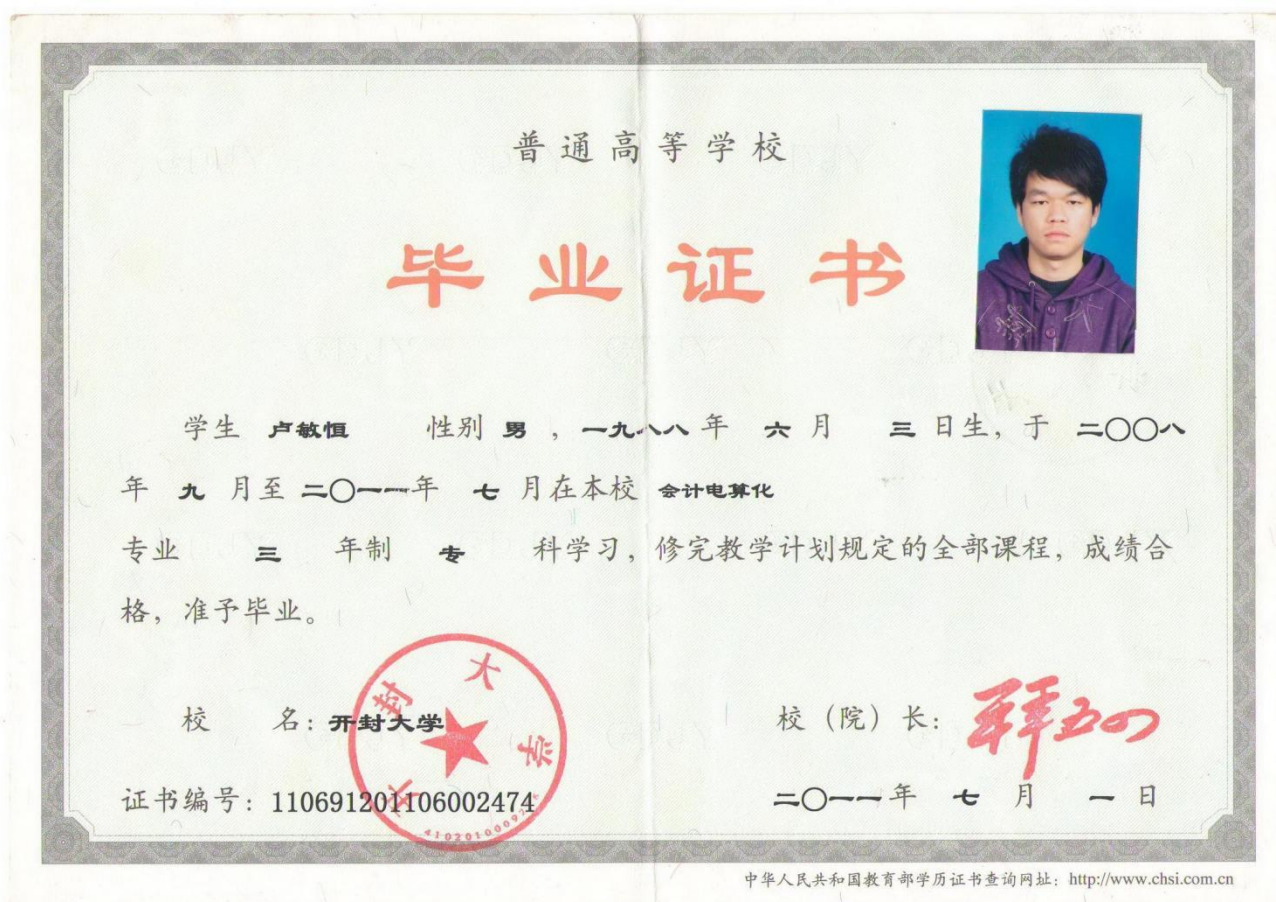 普通高等学校
毕业证书
学生 卢敏恒 性别 男 ，一九八八 年 六 月 三 日生，于 二〇〇八
年 九 月至 二〇一一年 七 月在本校 会计电算化
专业 三 年制 专 科学习，修完教学计划规定的全部课程，成绩合
格，准予毕业。
校 名：开封大学
开封大学
校（院）长：
证书编号：110691201106002474
二〇一一年 七 月 一 日
中华人民共和国教育部学历证书查询网址：http://www.chsi.com.cn